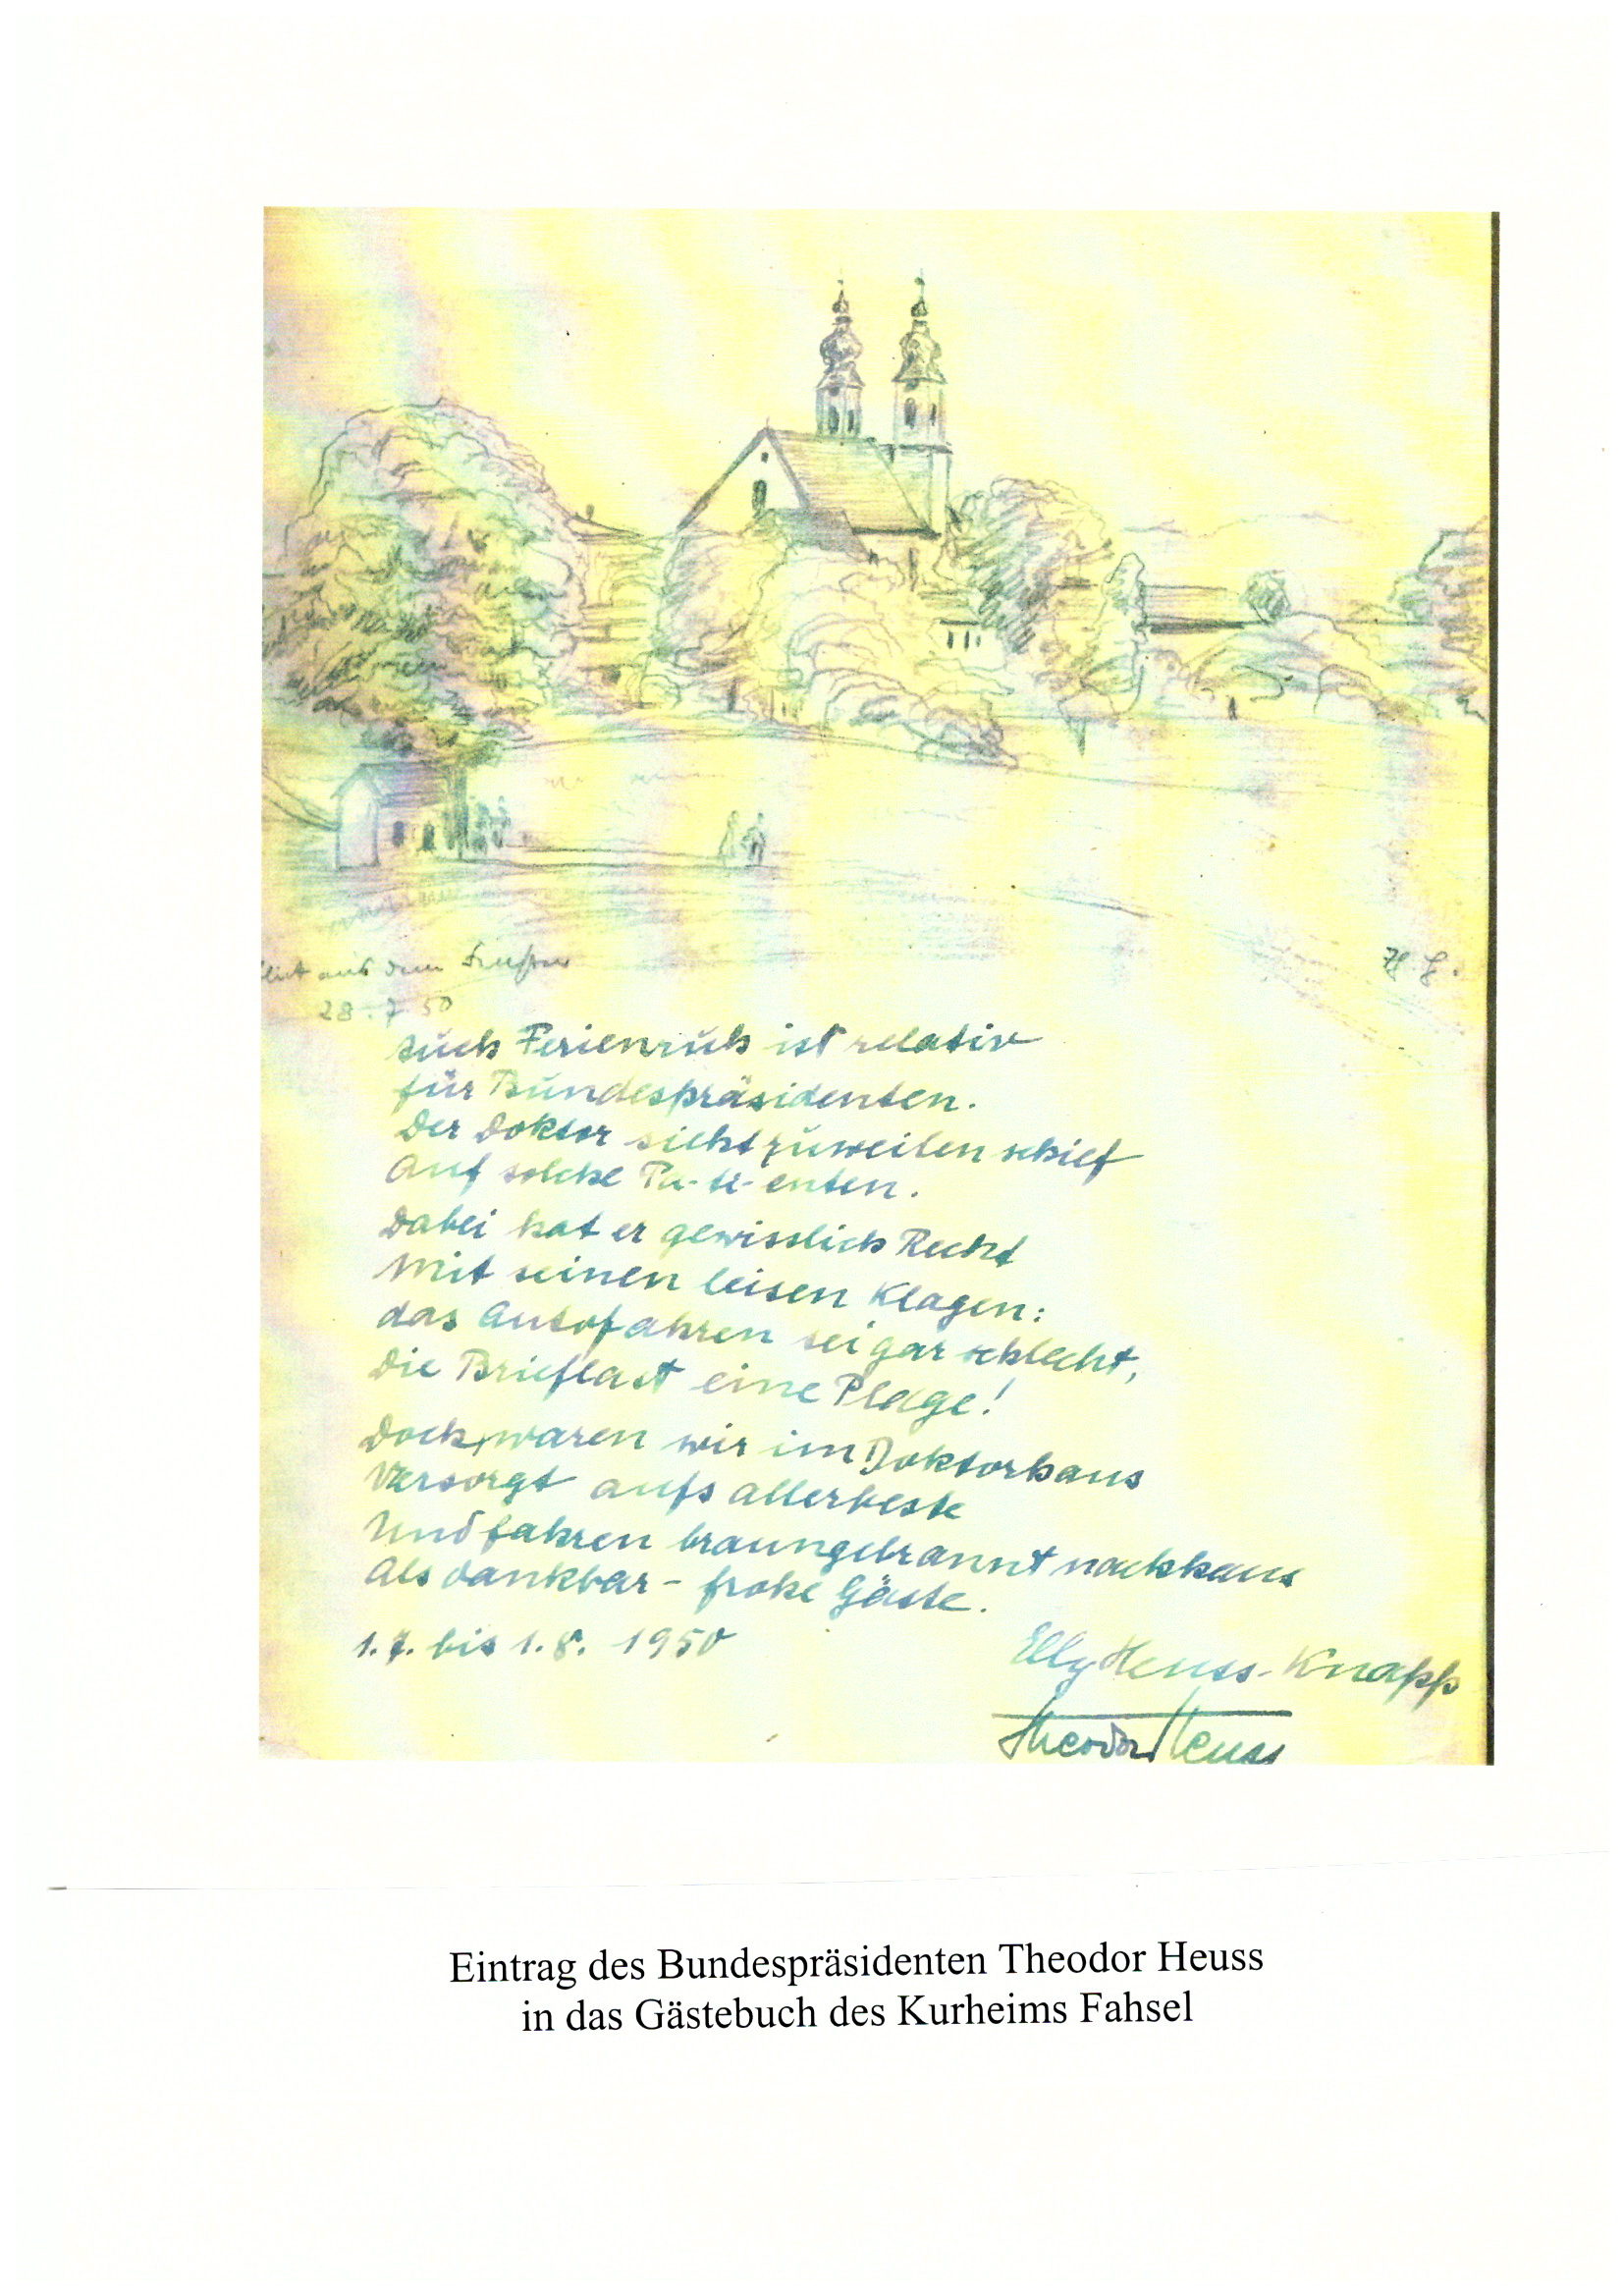 aus dem Fenster
28.7.50
Auch Ferienruh ist relativ
für Bundespräsidenten.
Der Doktor sieht zuweilen schief
Auf solche Pa-ti-enten.
Dabei hat er gewisslich Recht
Mit seinen leisen Klagen:
das Autofahren sei gar schlecht,
Die Brieflast eine Plage!
Doch, waren wir im Doktorhaus
Versorgt aufs allerbeste
Und fahren braungebrannt nachhaus
Als dankbar-frohe Gäste.
1.7. bis 1.8. 1950
Elly Heuss-Knapp
Theodor Heuss
Eintrag des Bundespräsidenten Theodor Heuss
in das Gästebuch des Kurheims Fahsel